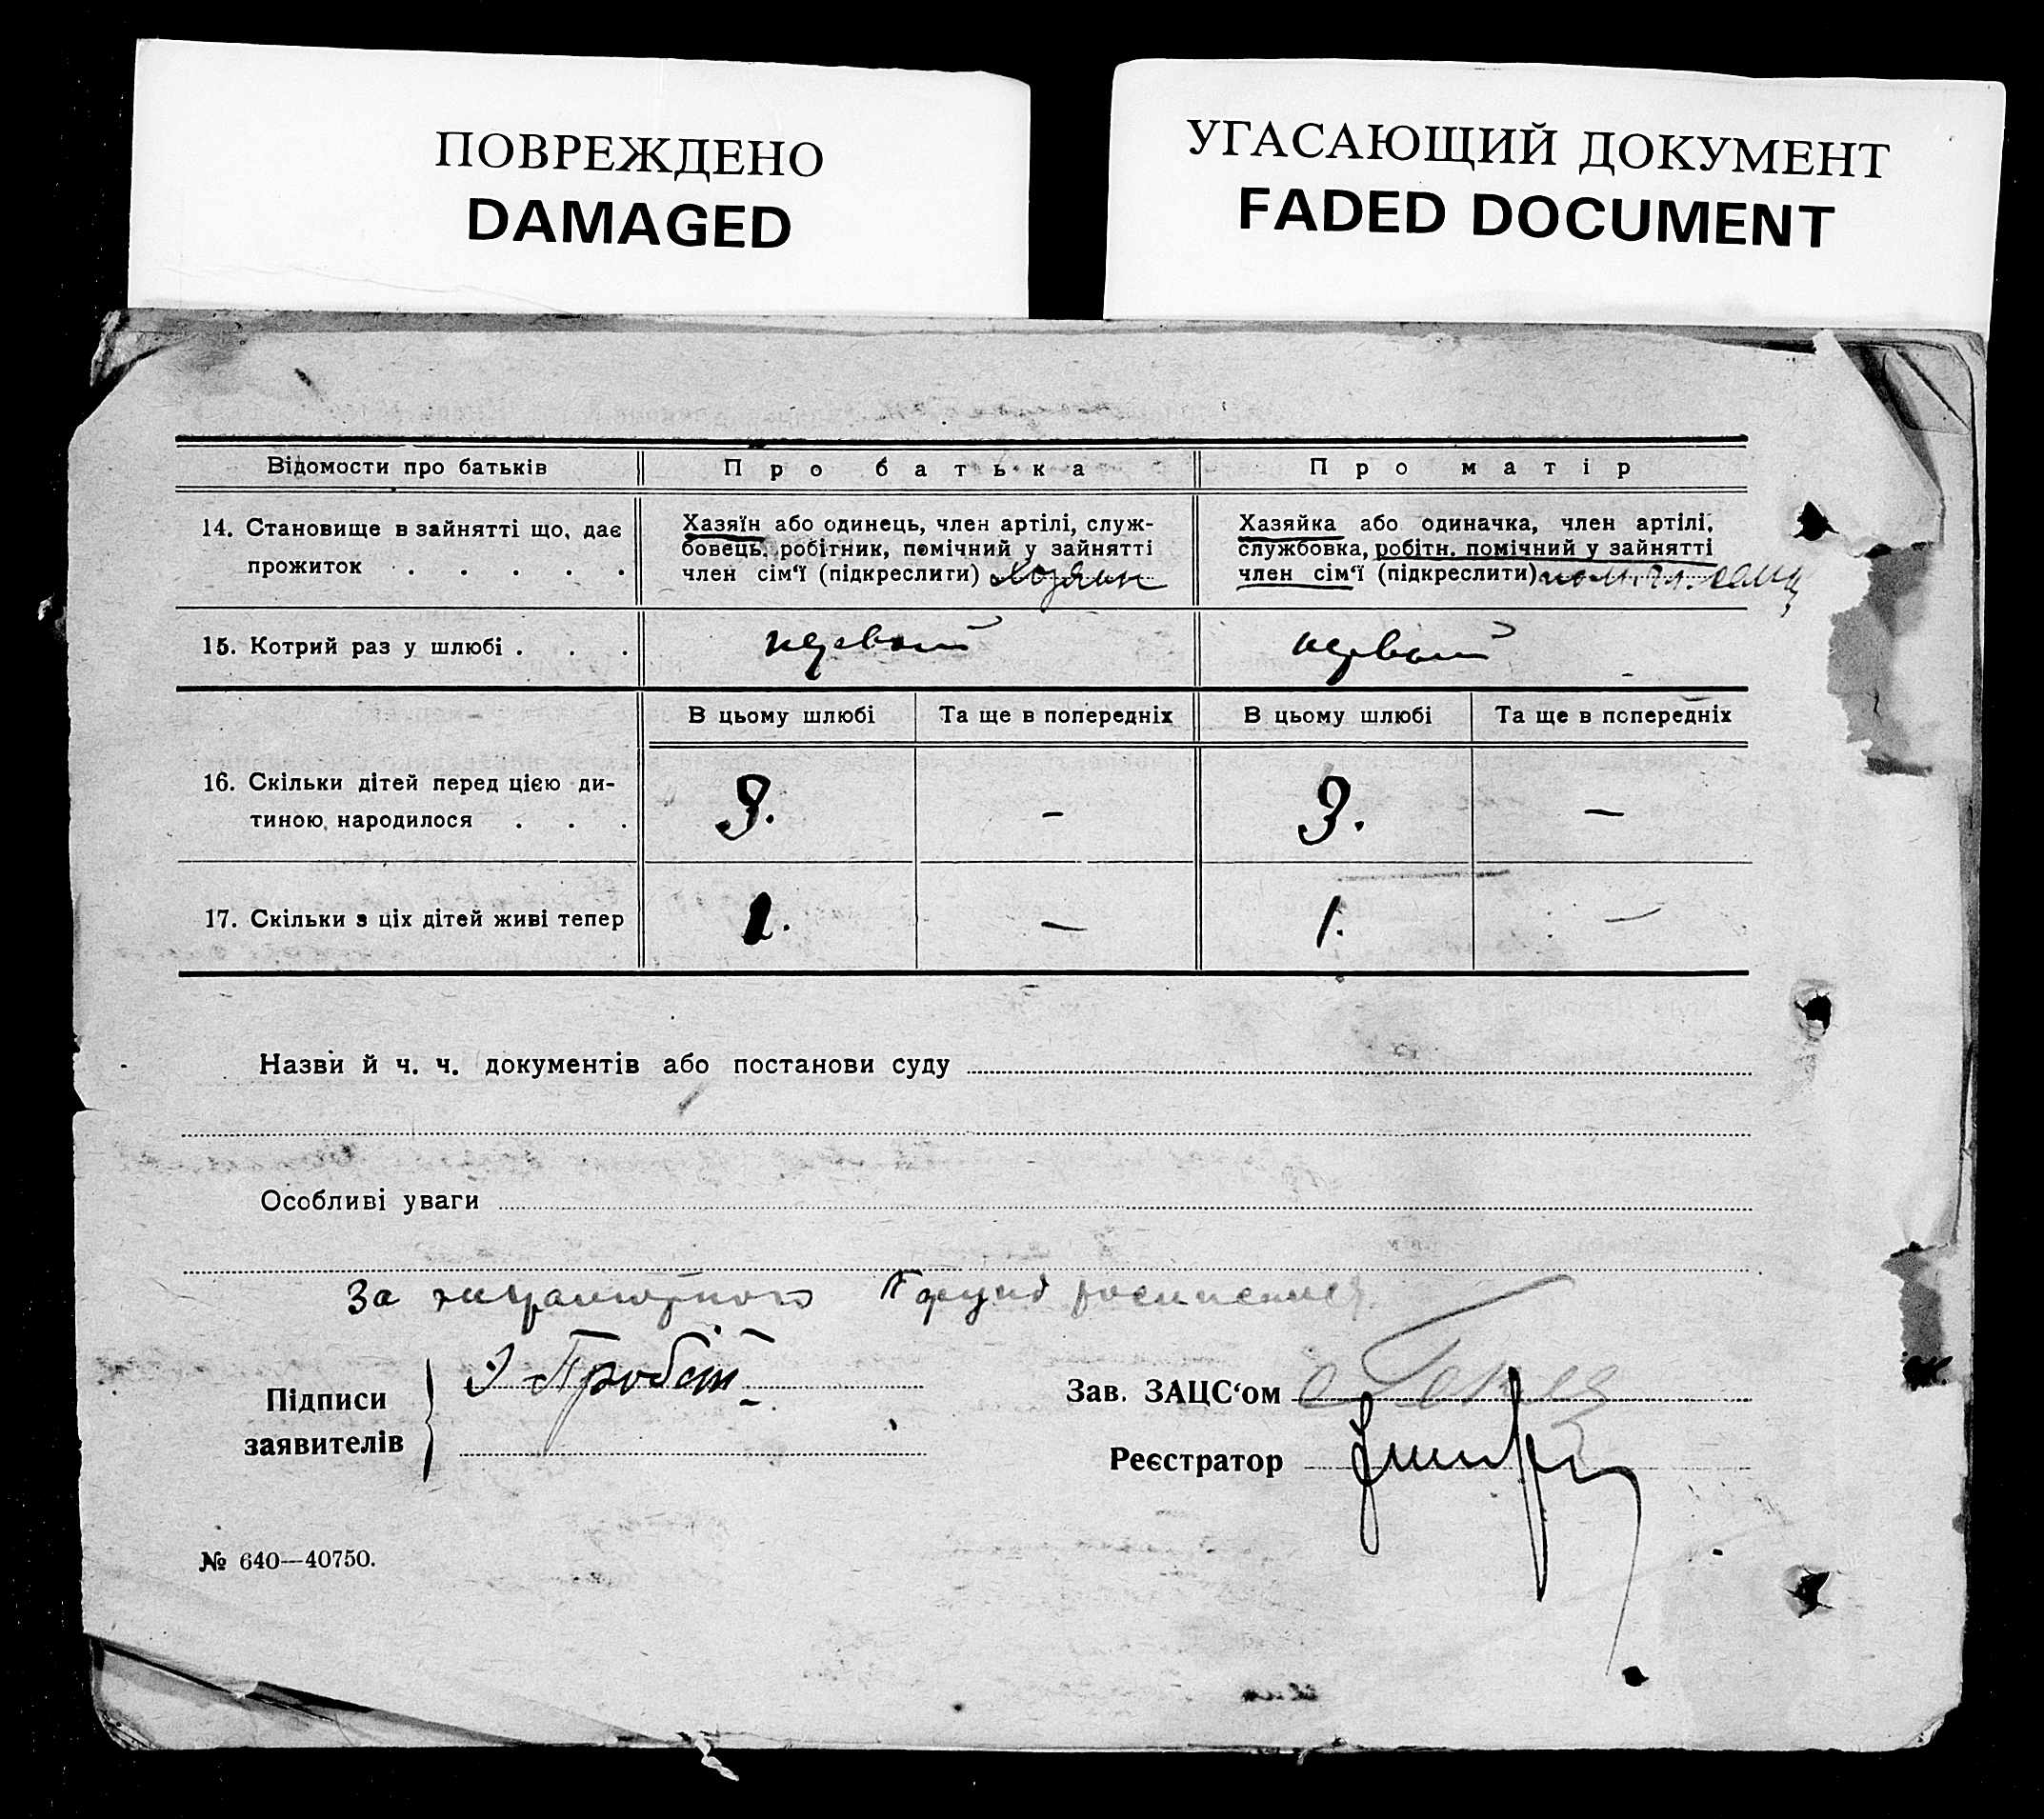 ПОВРЕЖДЕНО
DAMAGED
УГАСАЮЩИЙ ДОКУМЕНТ
FADED DOCUMENT
Відомости про батьків
Про батька
Про матір
14. Становище в зайнятті що, дає
прожиток . . . . .
Хазяїн або одинець, член артілі, служ-
бовець, робітник, помічний у зайнятті
член сім‘ї (підкреслити) Хозяин
Хазяйка або одиначка, член артілі,
службовка, робітн. помічний у зайнятті
член сім‘ї (підкреслити) пом. чл. семьи
15. Котрий раз у шлюбі . . .
первый
первый
В цьому шлюбі
Та ще в попередніх
В цьому шлюбі
Та ще в попередніх
16. Скільки дітей перед цією ди-
тиною народилося . . .
3.
—
3.
—
17. Скільки з ціх дітей живі тепер
1.
—
1.
—
Назви й ч. ч. документів або постанови суду
Особливі уваги
За неграмотного
Підписи
заявителів
Зав. ЗАЦС‘ом
Реєстратор
№ 640—40750.